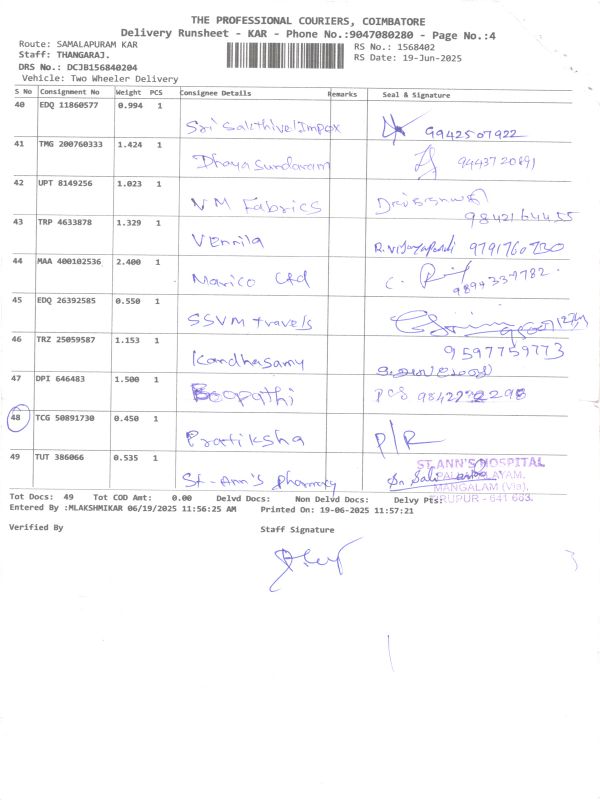 THE PROFESSIONAL COURIERS, COIMBATORE
Delivery Runsheet - KAR - Phone No.:9047080280 - Page No.:4
Route: SAMALAPURAM KAR
RS No.: 1568402
Staff: THANGARAJ.
RS Date: 19-Jun-2025
DRS No.: DCJB156840204
Vehicle: Two Wheeler Delivery
S No Consignment No Weight PCS Consignee Details Remarks Seal & Signature
40 EDQ 11860577 0.994 1
Sri Sakthivel Impex 9942507922
41 TMG 200760333 1.424 1
Dhaya Sundaram 9443720691
42 UPT 8149256 1.023 1
VM Fabrics
9842164455
43 TRP 4633878 1.329 1
Vennila R. Vijayapandi 9791760730
44 MAA 400102536 2.400 1
Marico Ltd C. 9894339782
45 EDQ 26392585 0.550 1
SSVM travels
46 TRZ 25059587 1.153 1
9597759773
Kandhasamy
47 DPI 646483 1.500 1
Boopathi
48 TCG 50891730 0.450 1
Pratiksha P/R
49 TUT 386066 0.535 1
ST.ANN'S HOSPITAL
PALAPALAYAM,
MANGALAM (Via),
TIRUPUR - 641 663.
St-Ann's Pharmacy
Tot Docs: 49 Tot COD Amt: 0.00 Delvd Docs: Non Delvd Docs: Delvy Pts:
Entered By :MLAKSHMIKAR 06/19/2025 11:56:25 AM Printed On: 19-06-2025 11:57:21
Verified By Staff Signature